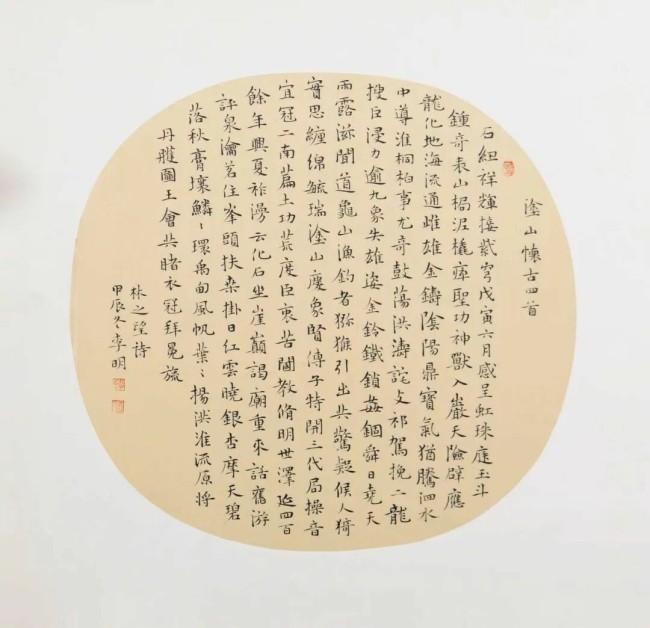 塗山懷古四首
石紐祥輝接紫穹戊寅六月感呈虹珠庭玉斗
鍾奇表山楬泥橇瘁聖功神獸入巖天險辟應
龍化地海流通雌雄金鑄陰陽鼎寶氣猶騰泗水
中導淮桐柏事尤奇鼓蕩洪濤詫支祁駕挽二龍
搜巨浸力逾九象失雄姿金鈴鐵鎖姦錮舜日堯天
雨露滋聞道龜山漁釣者猕猴引出共驚疑候人猗
實思纏綿毓瑞塗山慶象賢傳子特開三代局操音
宜冠二南篇土功荒度臣衷苦閫教脩明世澤延四百
餘年興夏祚漫云化石坐崖巔謁廟重來話舊游
評泉瀹茗住峯頭扶桑掛日紅雲曉銀杏摩天碧
落秋膏壤鱗〻環禹甸風帆葉〻揚洪淮流原將
丹雘圖王會共睹衣冠拜冕旒
林之望詩
甲辰冬李明